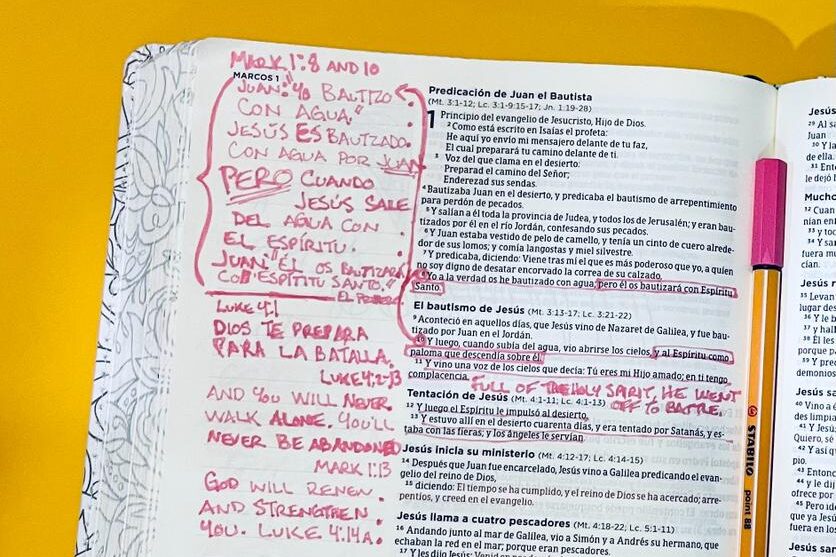 MARK 1:8 AND 10
MARCOS 1
JUAN: "YO BAUTIZO
CON AGUA."
JESÚS ES BAUTIZADO
CON AGUA POR JUAN
PERO CUANDO
JESÚS SALE
DEL AGUA CON
EL ESPÍRITU.
JUAN: "ÉL OS BAUTIZARÁ
CON ESPÍTITU SANTO."
LUKE 4:1
DIOS TE PREPARA
PARA LA BATALLA.
LUKE 4:2-13
AND YOU WILL NEVER
WALK ALONE. YOU'LL
NEVER BE ABANDONED
MARK 1:13
GOD WILL RENEW
AND STRENGTHEN
YOU. LUKE 4:14A.
Predicación de Juan el Bautista
(Mt. 3:1-12; Lc. 3:1-9,15-17; Jn. 1:19-28)
1 Principio del evangelio de Jesucristo, Hijo de Dios.
2 Como está escrito en Isaías el profeta:
He aquí yo envío mi mensajero delante de tu faz,
El cual preparará tu camino delante de ti.
3 Voz del que clama en el desierto:
Preparad el camino del Señor;
Enderezad sus sendas.
4 Bautizaba Juan en el desierto, y predicaba el bautismo de arrepentimiento
para perdón de pecados.
5 Y salían a él toda la provincia de Judea, y todos los de Jerusalén; y eran bau-
tizados por él en el río Jordán, confesando sus pecados.
6 Y Juan estaba vestido de pelo de camello, y tenía un cinto de cuero alrede-
dor de sus lomos; y comía langostas y miel silvestre.
7 Y predicaba, diciendo: Viene tras mí el que es más poderoso que yo, a quien
no soy digno de desatar encorvado la correa de su calzado.
8 Yo a la verdad os he bautizado con agua; pero él os bautizará con Espíritu
Santo.
El bautismo de Jesús (Mt. 3:13-17; Lc. 3:21-22)
9 Aconteció en aquellos días, que Jesús vino de Nazaret de Galilea, y fue bau-
tizado por Juan en el Jordán.
10 Y luego, cuando subía del agua, vio abrirse los cielos, y al Espíritu como
paloma que descendía sobre él.
11 Y vino una voz de los cielos que decía: Tú eres mi Hijo amado; en ti tengo
complacencia.
FULL OF THE HOLY SPIRIT, HE WENT
OFF TO BATTLE.
Tentación de Jesús (Mt. 4:1-11; Lc. 4:1-13)
12 Y luego el Espíritu le impulsó al desierto.
13 Y estuvo allí en el desierto cuarenta días, y era tentado por Satanás, y es-
taba con las fieras; y los ángeles le servían.
Jesús inicia su ministerio (Mt. 4:12-17; Lc. 4:14-15)
14 Después que Juan fue encarcelado, Jesús vino a Galilea predicando el evan-
gelio del reino de Dios,
15 diciendo: El tiempo se ha cumplido, y el reino de Dios se ha acercado; arre-
pentíos, y creed en el evangelio.
Jesús llama a cuatro pescadores (Mt. 4:18-22; Lc. 5:1-11)
16 Andando junto al mar de Galilea, vio a Simón y a Andrés su hermano, que
echaban la red en el mar; porque eran pescadores.
17 Y les dijo Jesús: Venid
STABILO
point 88